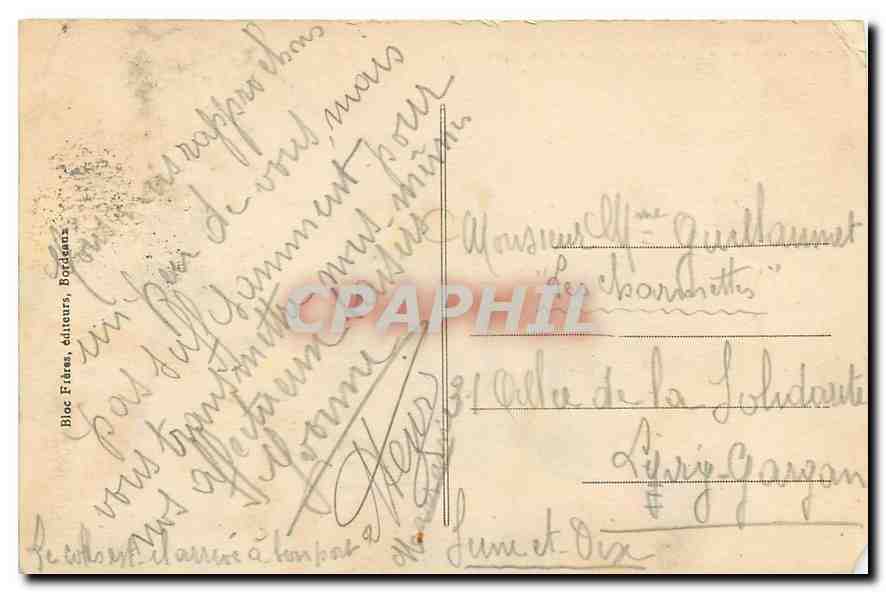 Nous rapprochons
un peu de vous, mais
pas suffisamment pour
vous transmettre nous mêmes
nos affectueux baisers
Yvonne
Henri
Le colis est il arrivé à bon port
Bloc Frères, éditeurs, Bordeaux
CPAPHIL
Monsieur Mme Guillaumet
"Les Charmettes"
31 Allée de la Solidarité
Livry-Gargan
Seine-et-Oise